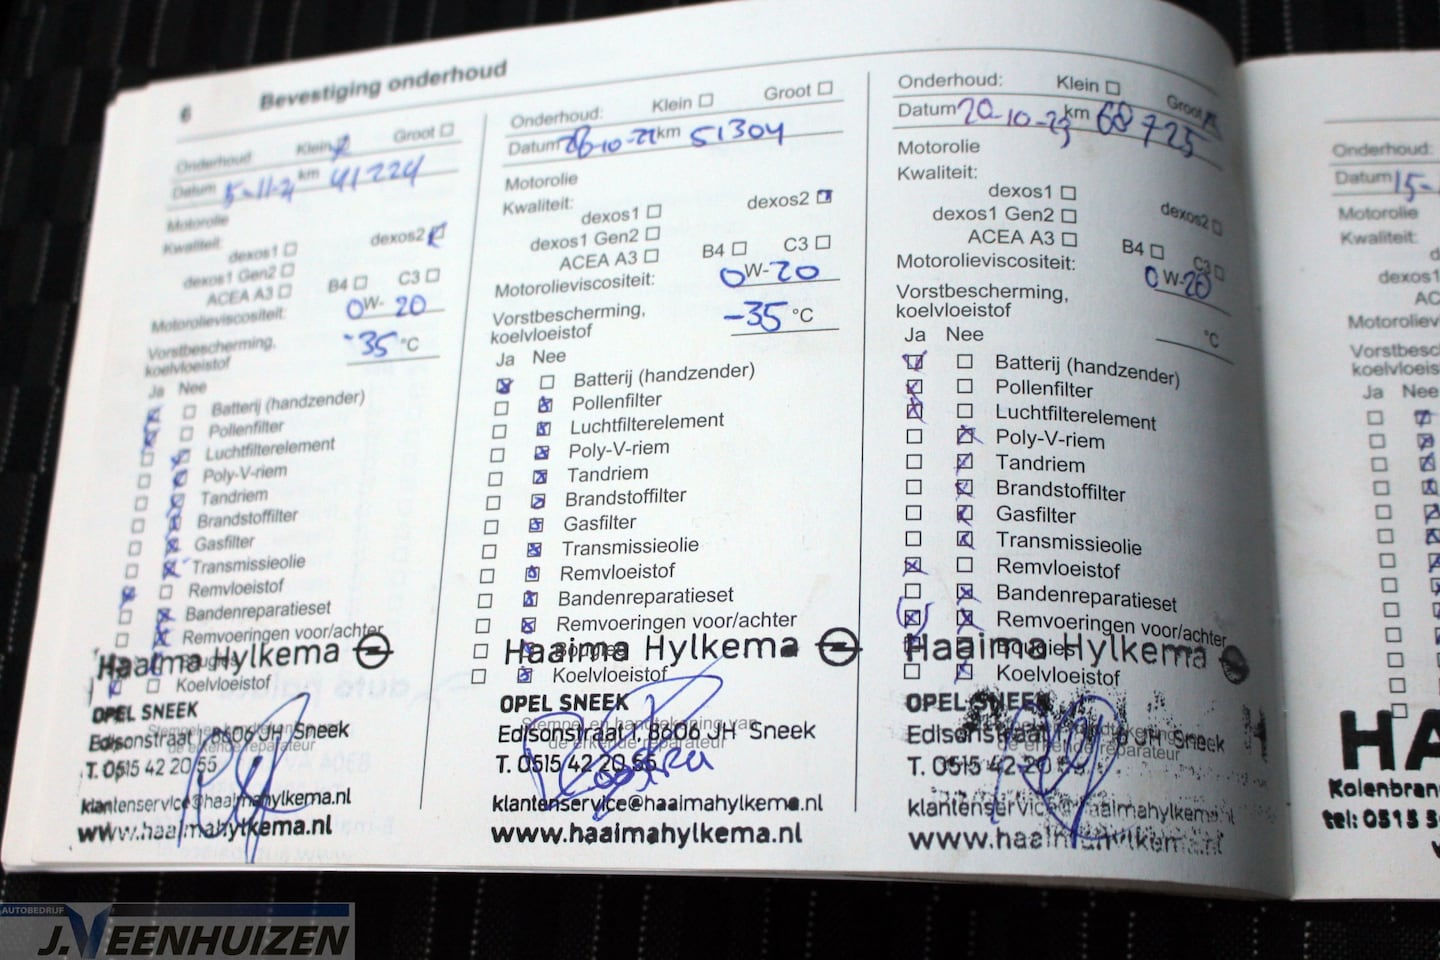 6 Bevestiging onderhoud
Onderhoud: Klein Groot
Datum 5-11-21 km 41224
Motorolie
Kwaliteit: dexos1 dexos2
dexos1 Gen2
ACEA A3 B4 C3
Motorolieviscositeit: 0W-20
Vorstbescherming, koelvloeistof -35 °C
Ja Nee
Batterij (handzender)
Pollenfilter
Luchtfilterelement
Poly-V-riem
Tandriem
Brandstoffilter
Gasfilter
Transmissieolie
Remvloeistof
Bandenreparatieset
Remvoeringen voor/achter
Bougies
Haaima Hylkema
Koelvloeistof
OPEL SNEEK
Stempel en handtekening van
Edisonstraat 1, 8606 JH Sneek
de erkende reparateur
T. 0515 42 20 55
klantenservice@haaimahylkema.nl
www.haaimahylkema.nl
Onderhoud: Klein Groot
Datum 28-10-22 km 51304
Motorolie
Kwaliteit: dexos1 dexos2
dexos1 Gen2
ACEA A3 B4 C3
Motorolieviscositeit: 0W-20
Vorstbescherming, koelvloeistof -35 °C
Ja Nee
Batterij (handzender)
Pollenfilter
Luchtfilterelement
Poly-V-riem
Tandriem
Brandstoffilter
Gasfilter
Transmissieolie
Remvloeistof
Bandenreparatieset
Remvoeringen voor/achter
Bougies
Haaima Hylkema
Koelvloeistof
OPEL SNEEK
Stempel en handtekening van
Edisonstraat 1, 8606 JH Sneek
de erkende reparateur
T. 0515 42 20 55
klantenservice@haaimahylkema.nl
www.haaimahylkema.nl
Onderhoud: Klein Groot
Datum 20-10-23 km 68725
Motorolie
Kwaliteit:
dexos1 dexos2
dexos1 Gen2
ACEA A3 B4 C3
Motorolieviscositeit: 0W-20
Vorstbescherming,
koelvloeistof °C
Ja Nee
Batterij (handzender)
Pollenfilter
Luchtfilterelement
Poly-V-riem
Tandriem
Brandstoffilter
Gasfilter
Transmissieolie
Remvloeistof
Bandenreparatieset
Remvoeringen voor/achter
Bougies
Haaima Hylkema
Koelvloeistof
OPEL SNEEK
Edisonstraat 8606 JH Sneek
de erkende reparateur
T. 0515 42 20 55
klantenservice@haaimahylkema.nl
www.haaimahylkema.nl
Onderhoud:
Datum 15-
Motorolie
Kwaliteit:
dexos1
AC
Motoroliev
Vorstbesc
koelvloeis
Ja Nee
HA
Kolenbran
tel: 0515 5
AUTOBEDRIJF
J. VEENHUIZEN